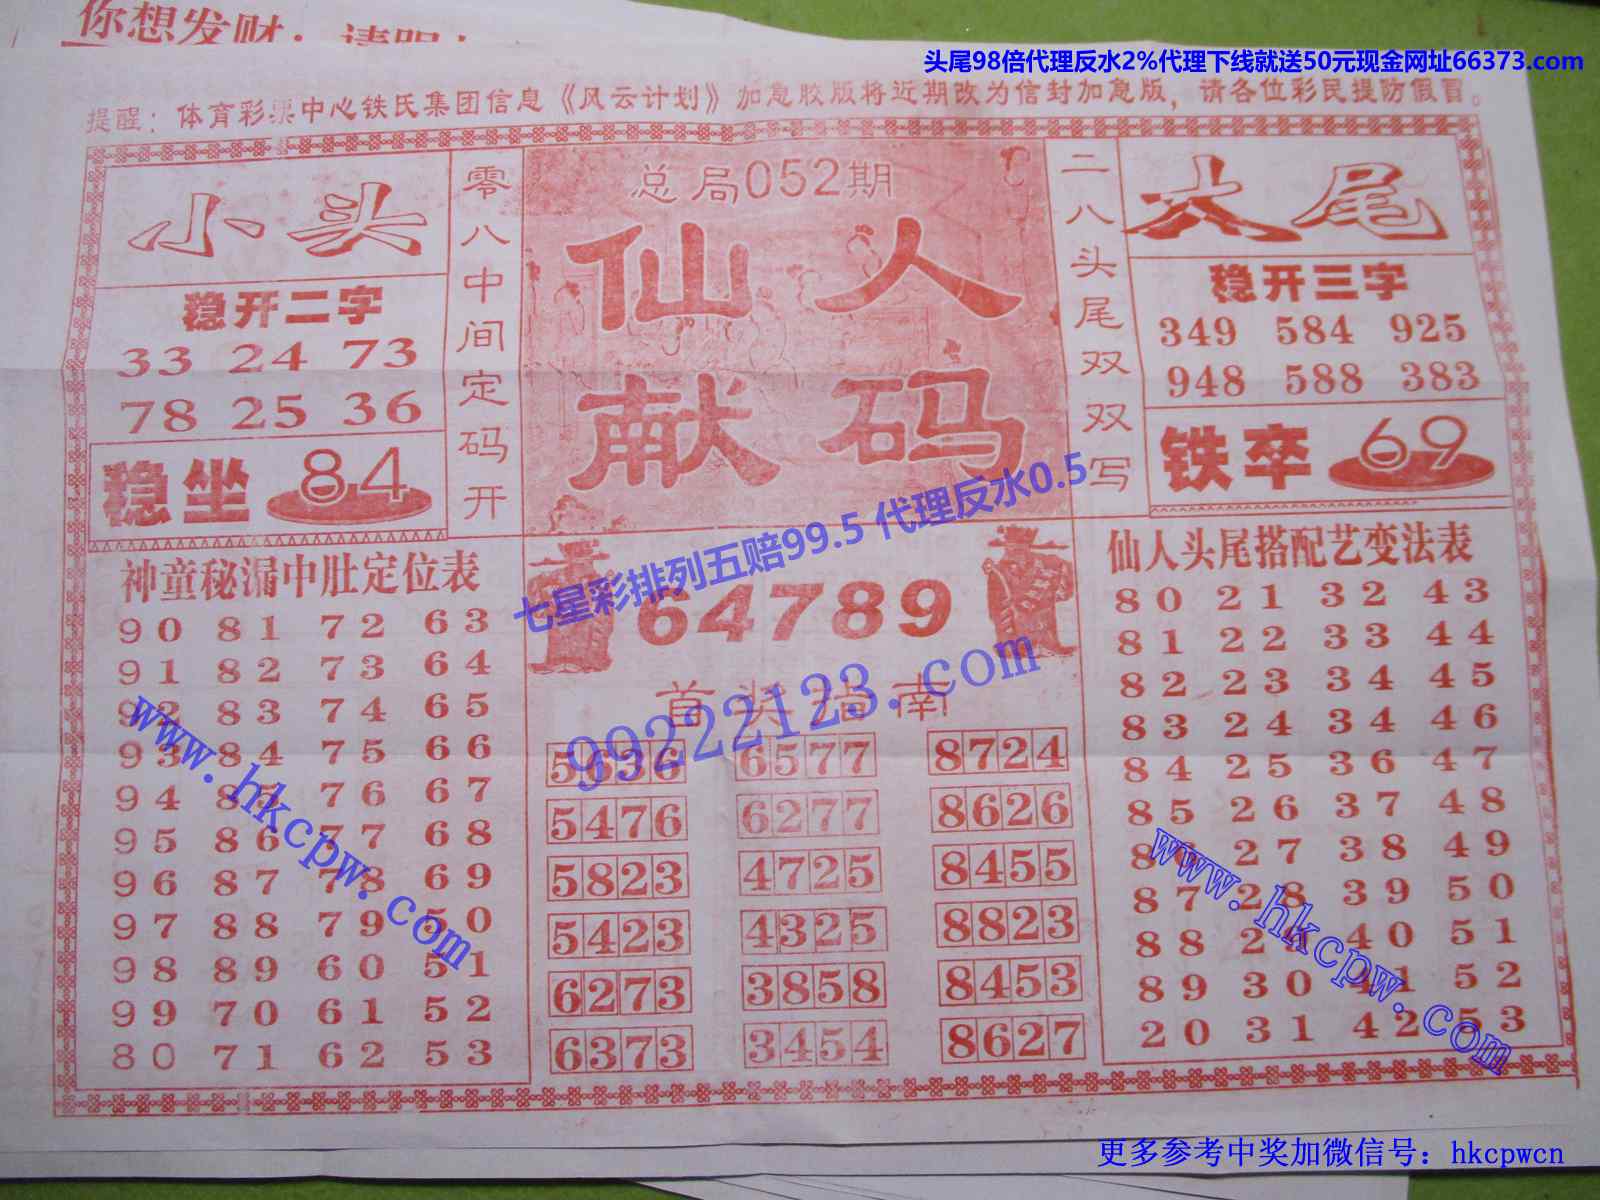 你想发财：请明
头尾98倍代理反水2%代理下线就送50元现金网址66373.com
提醒：体育彩票中心铁氏集团信息《风云计划》加急胶版将近期改为信封加急版，请各位彩民提防假冒。
小头
稳开二字
33 24 73
78 25 36
稳坐 84
零八中间定码开
总局052期
仙人
献码
二八头尾双双写
大尾
稳开三字
349 584 925
948 588 383
铁卒 69
神童秘漏中肚定位表
90 81 72 63
91 82 73 64
92 83 74 65
93 84 75 66
94 85 76 67
95 86 77 68
96 87 78 69
97 88 79 50
98 89 60 51
99 70 61 52
80 71 62 53
七星彩排列五赔99.5 代理反水0.5
64789
首奖指南
99222123.com
5636 6577 8724
5476 6277 8626
5823 4725 8455
5423 4325 8823
6273 3858 8453
6373 3454 8627
仙人头尾搭配艺变法表
80 21 32 43
81 22 33 44
82 23 34 45
83 24 34 46
84 25 36 47
85 26 37 48
86 27 38 49
87 28 39 50
88 29 40 51
89 30 41 52
20 31 42 53
www.hkcpw.com
www.hkcpw.com
更多参考中奖加微信号：hkcpwcn